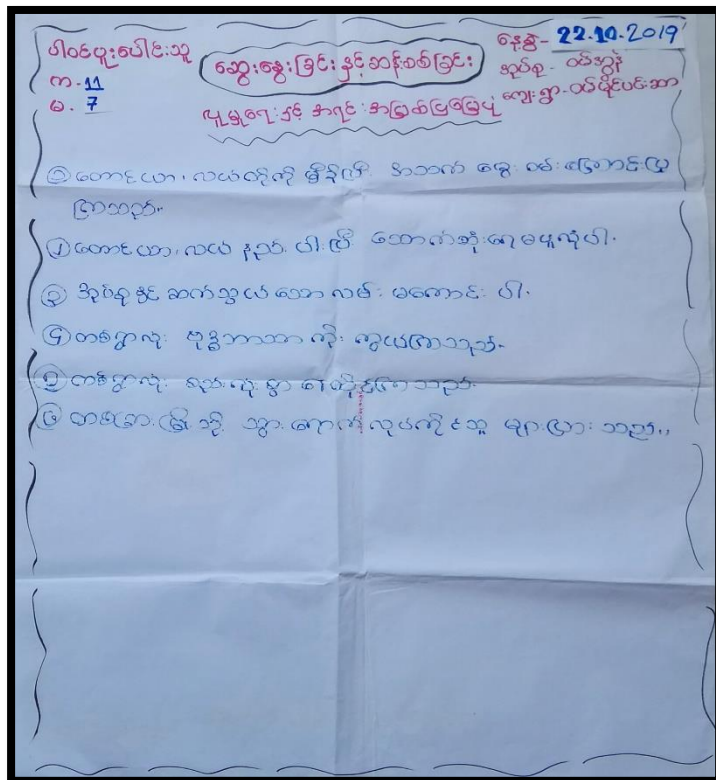 ပါဝင်ပူးပေါင်းသူ
က - 11
မ - 7
ဆွေးနွေးခြင်းနှင့်ဆန်းစစ်ခြင်း
နေ့စွဲ - 22.10.2019
အုပ်စု -
ကျေးရွာ -
လူမှုရေးနှင့် အရင်းအမြစ်ပြမြေပုံ
① တောင်ယာ၊ လယ်တို့ကို မှီခိုပြီး အသက်မွေးဝမ်းကြောင်းပြု
ကြသည်။
② တောင်ယာ၊ လယ် နည်းပါးပြီး သောက်သုံးရေမလုံလောက်ပါ။
③ အုပ်စုနှင့် ဆက်သွယ်သောလမ်း မကောင်းပါ။
④ တစ်ရွာလုံး ဗုဒ္ဓဘာသာ ကိုးကွယ်ကြသည်။
⑤ တစ်ရွာလုံး စည်းလုံးစွာ နေထိုင်ကြသည်။
⑥ တစ်ခြားမြို့သို့ သွားရောက်လုပ်ကိုင်သူ များပြားသည်။